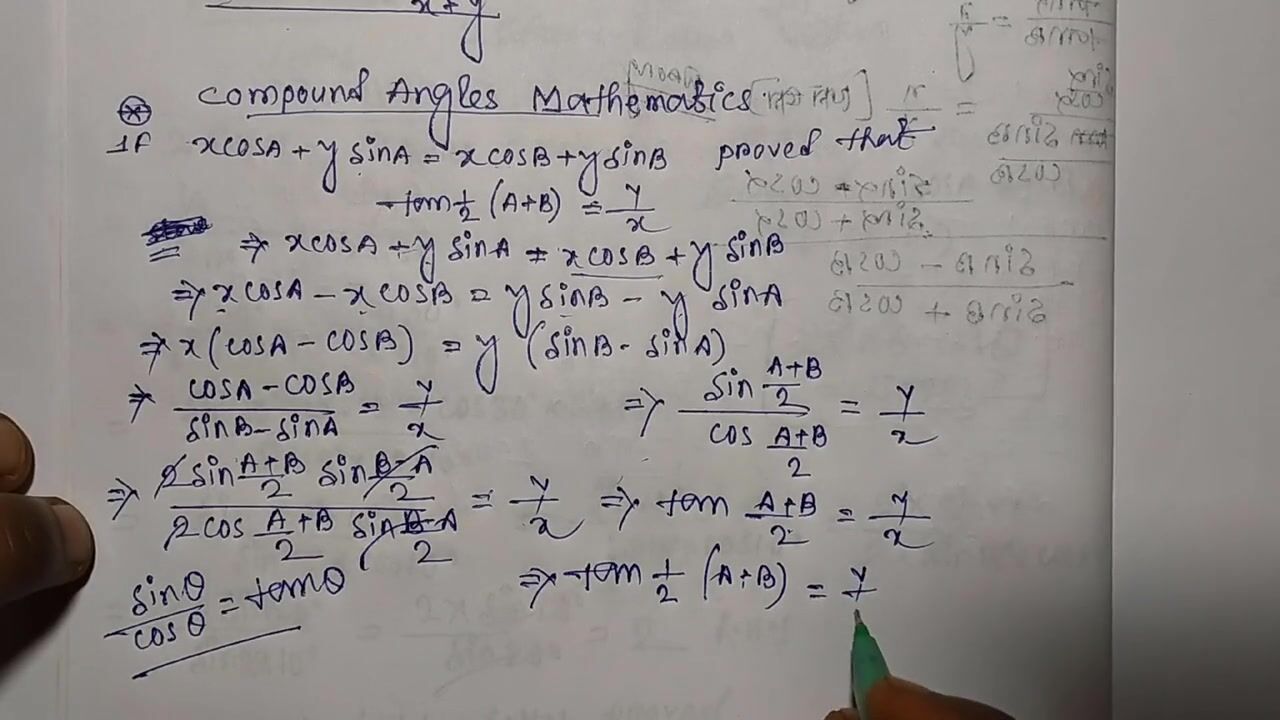 x+y
Compound Angles Mathematics
If x cosA + y sinA = x cosB + y sinB proved that
tan 1/2 (A+B) = y/x
⇒ x cosA + y sinA = x cosB + y sinB
⇒ x cosA - x cosB = y sinB - y sinA
⇒ x (cosA - cosB) = y (sinB - sinA)
⇒ (cosA - cosB)/(sinB - sinA) = y/x
⇒ (2 sin (A+B)/2 sin (B-A)/2)/(2 cos (A+B)/2 sin (B-A)/2) = y/x
sinθ/cosθ = tanθ
⇒ (sin (A+B)/2)/(cos (A+B)/2) = y/x
⇒ tan (A+B)/2 = y/x
⇒ tan 1/2 (A+B) = y